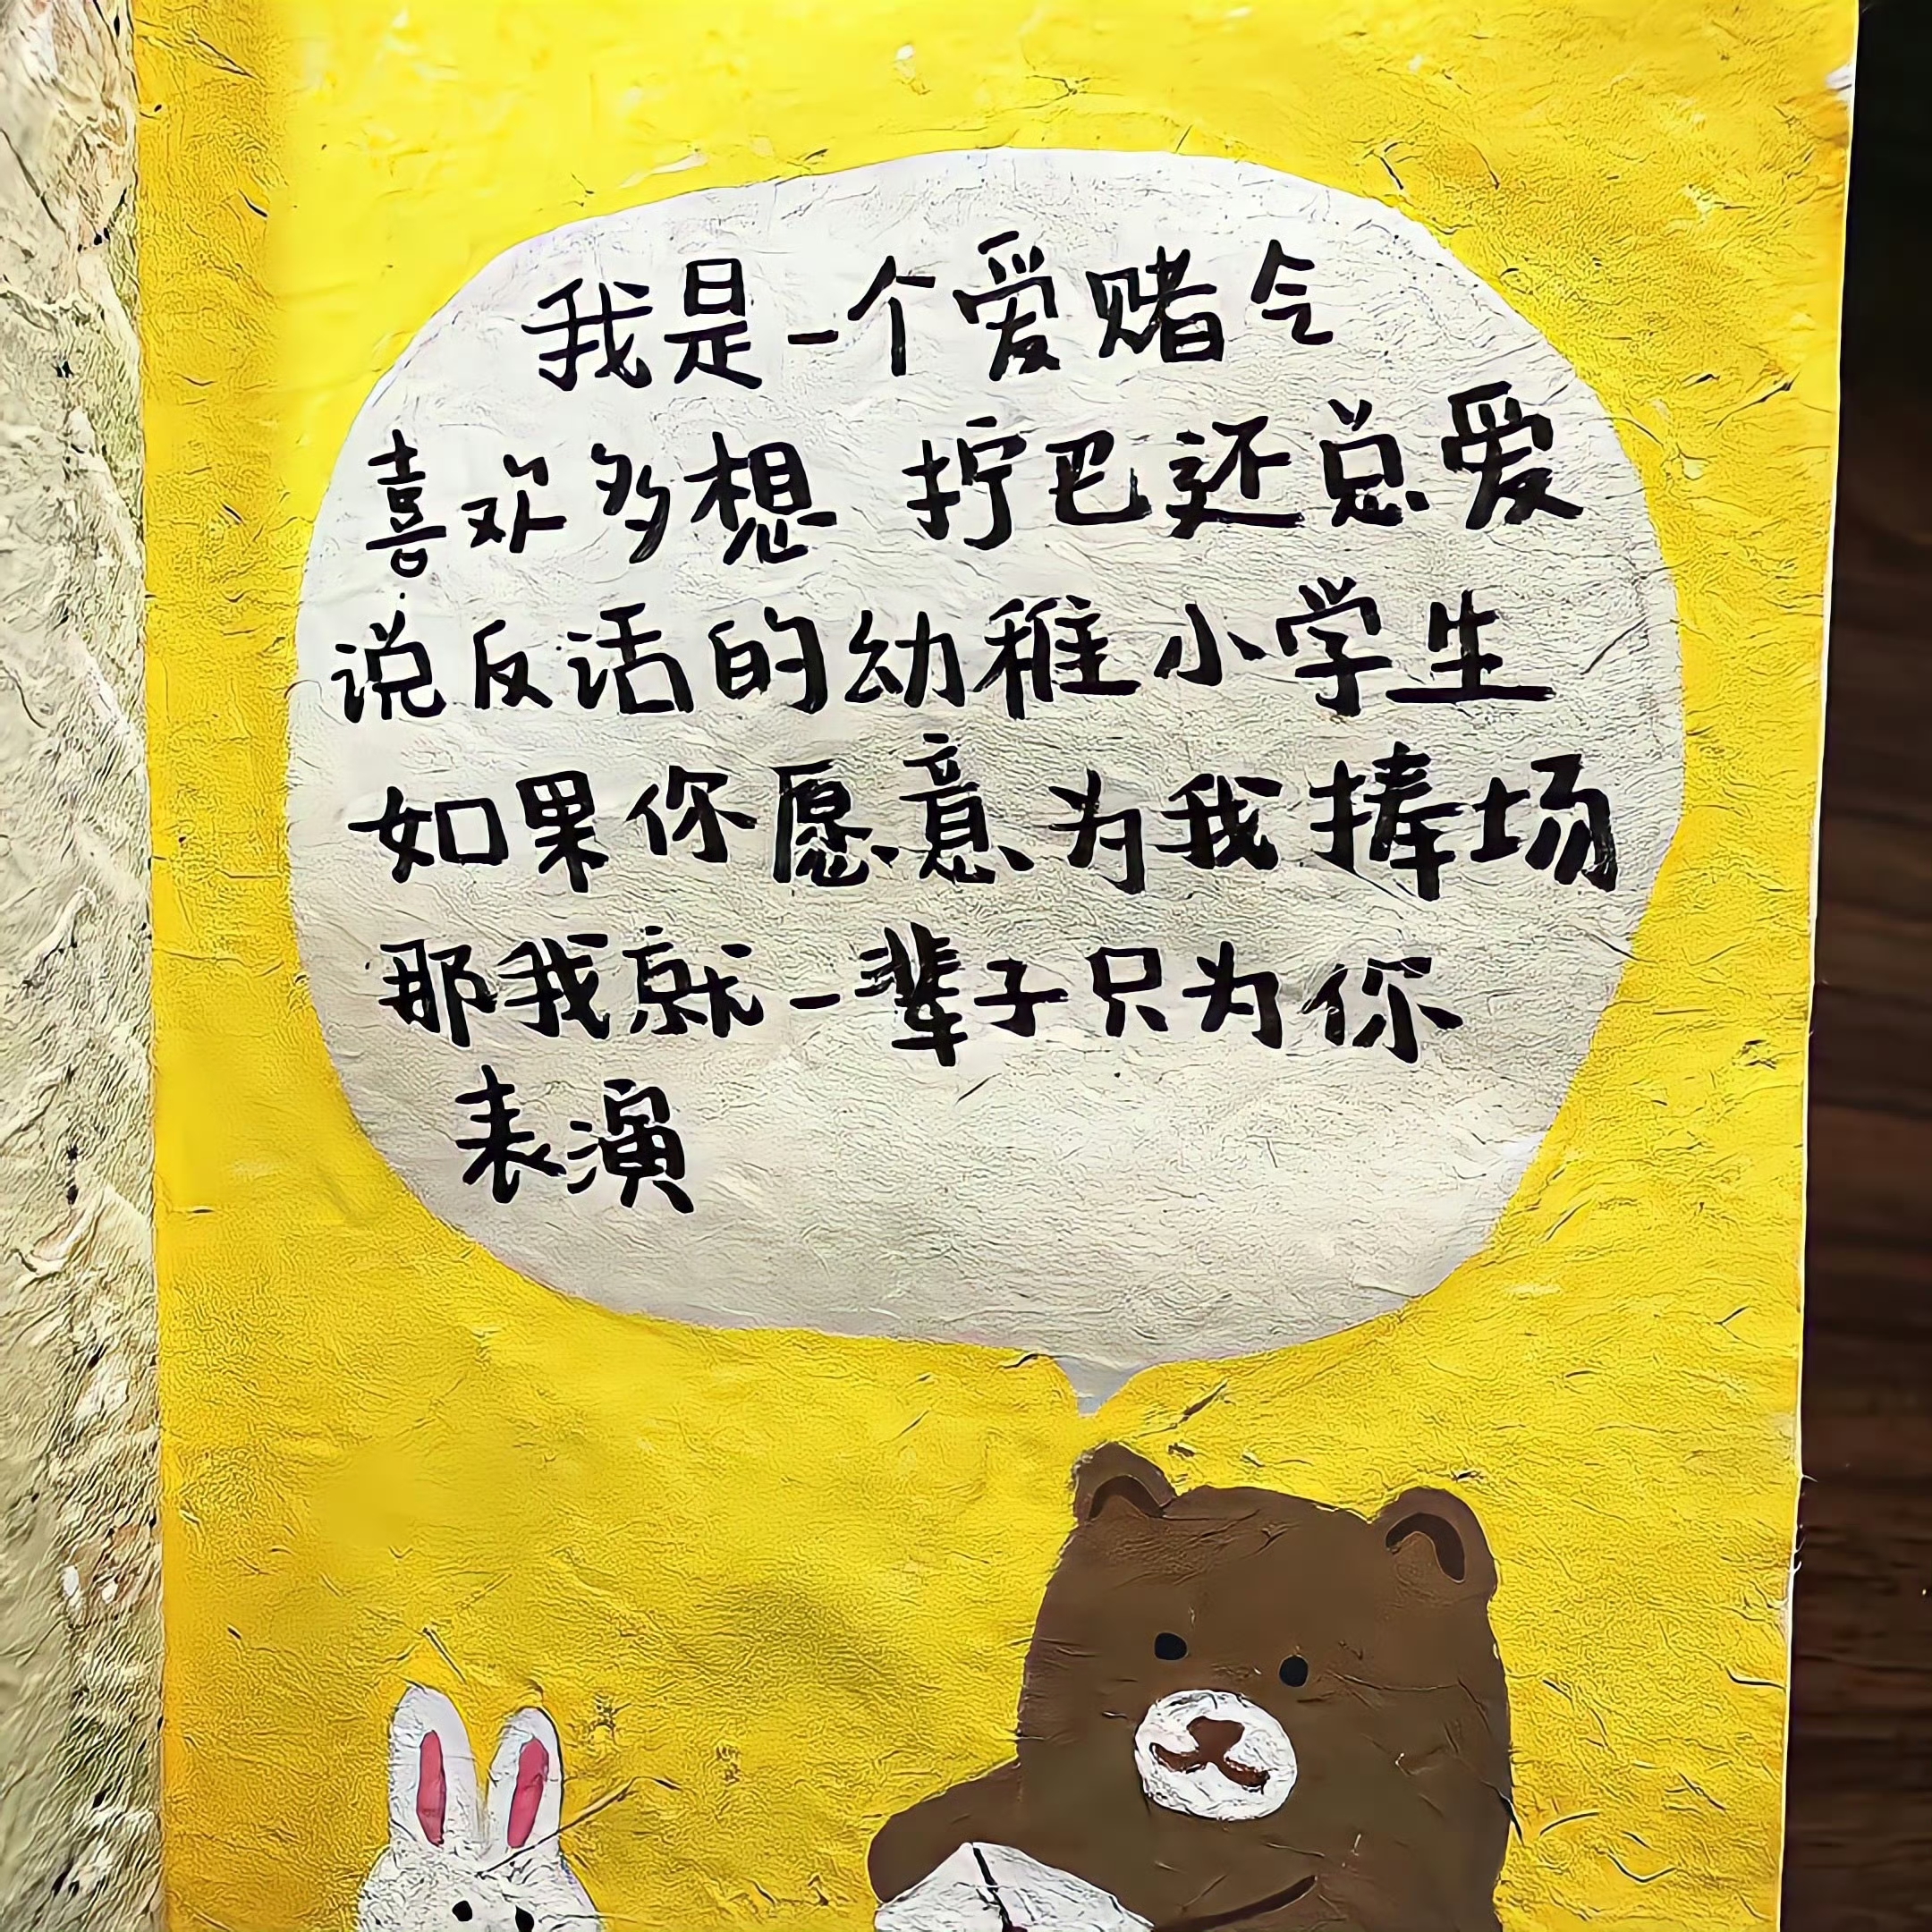 我是一个爱赌气
喜欢多想 拧巴还总爱
说反话的幼稚小学生
如果你愿意为我捧场
那我就一辈子只为你
表演